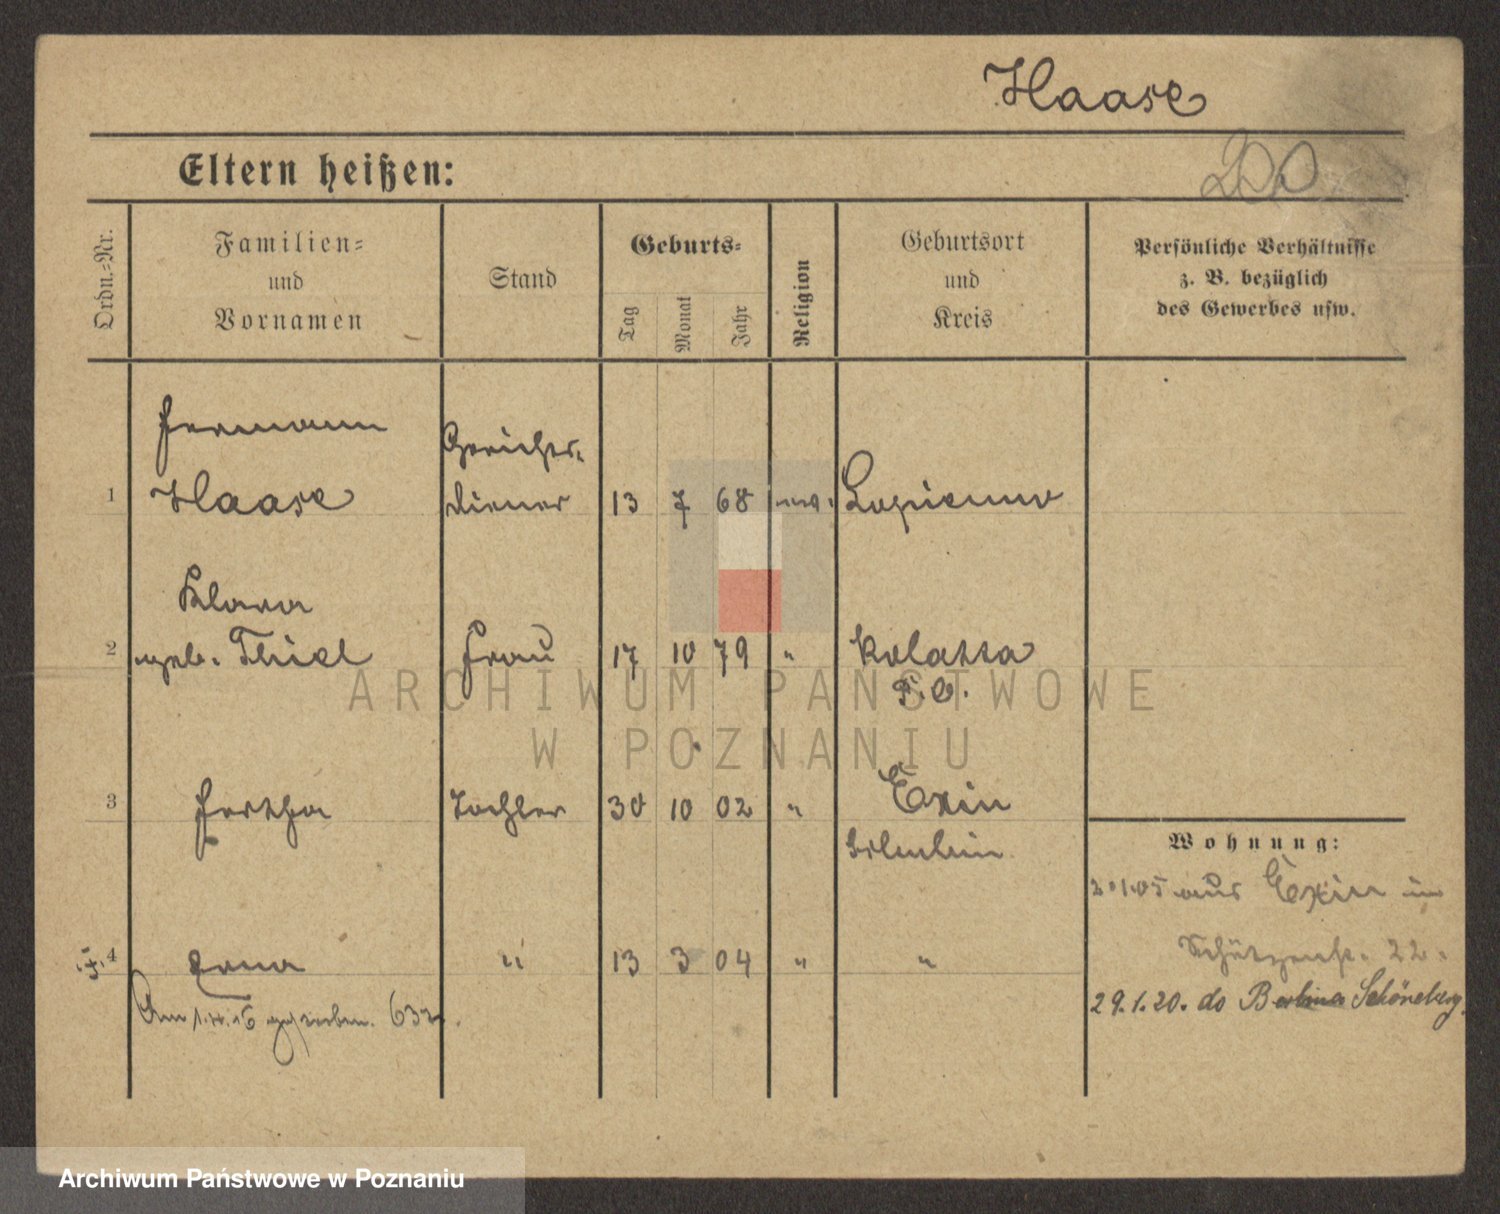 Haase
Eltern heißen:
Ordn.-Nr.
Familien-
und
Vornamen
Stand
Geburts-
Tag
Monat
Jahr
Religion
Geburtsort
und
Kreis
Persönliche Verhältnisse
z. B. bezüglich
des Gewerbes usw.
Hermann
Gerichts-
1 Haase diener 13 7 68 ev. Lopienno
Klara
2 geb. Thiel Frau 17 10 79 " Kolatka
3 Hertha Tochter 30 10 02 " Exin
Schubin
4 Erna " 13 3 04 " "
Am gestorben.
Wohnung:
2.1.05 aus Exin in
Schützenstr. 22.
29.1.20. do Berlina Schöneberg.
ARCHIWUM PAŃSTWOWE
W POZNANIU
Archiwum Państwowe w Poznaniu